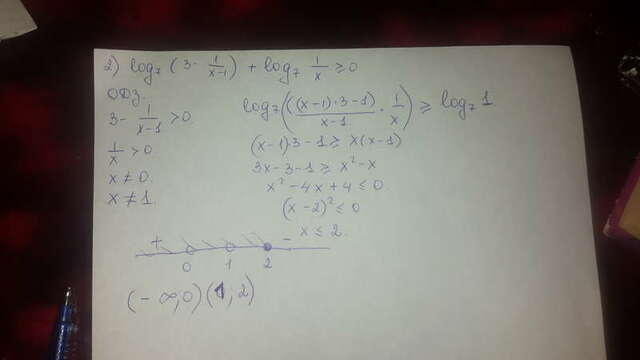 2) log₇ (3 - 1/(x-1)) + log₇ 1/x ≥ 0
ОДЗ.
3 - 1/(x-1) > 0
1/x > 0
x ≠ 0
x ≠ 1.
log₇(((x-1)·3-1)/(x-1) · 1/x) ≥ log₇ 1
(x-1)·3-1 ≥ x(x-1)
3x-3-1 ≥ x²-x
x²-4x+4 ≤ 0
(x-2)² ≤ 0
x ≤ 2.
+ -
0 1 2
(-∞;0)(1;2)